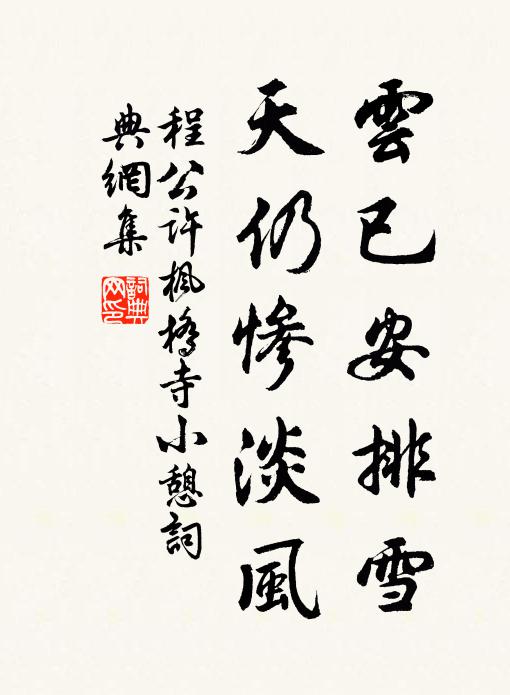 雲已安排雪
天仍慘淡風
程公許楓橋寺小憩詞
典網集
詞典
网印